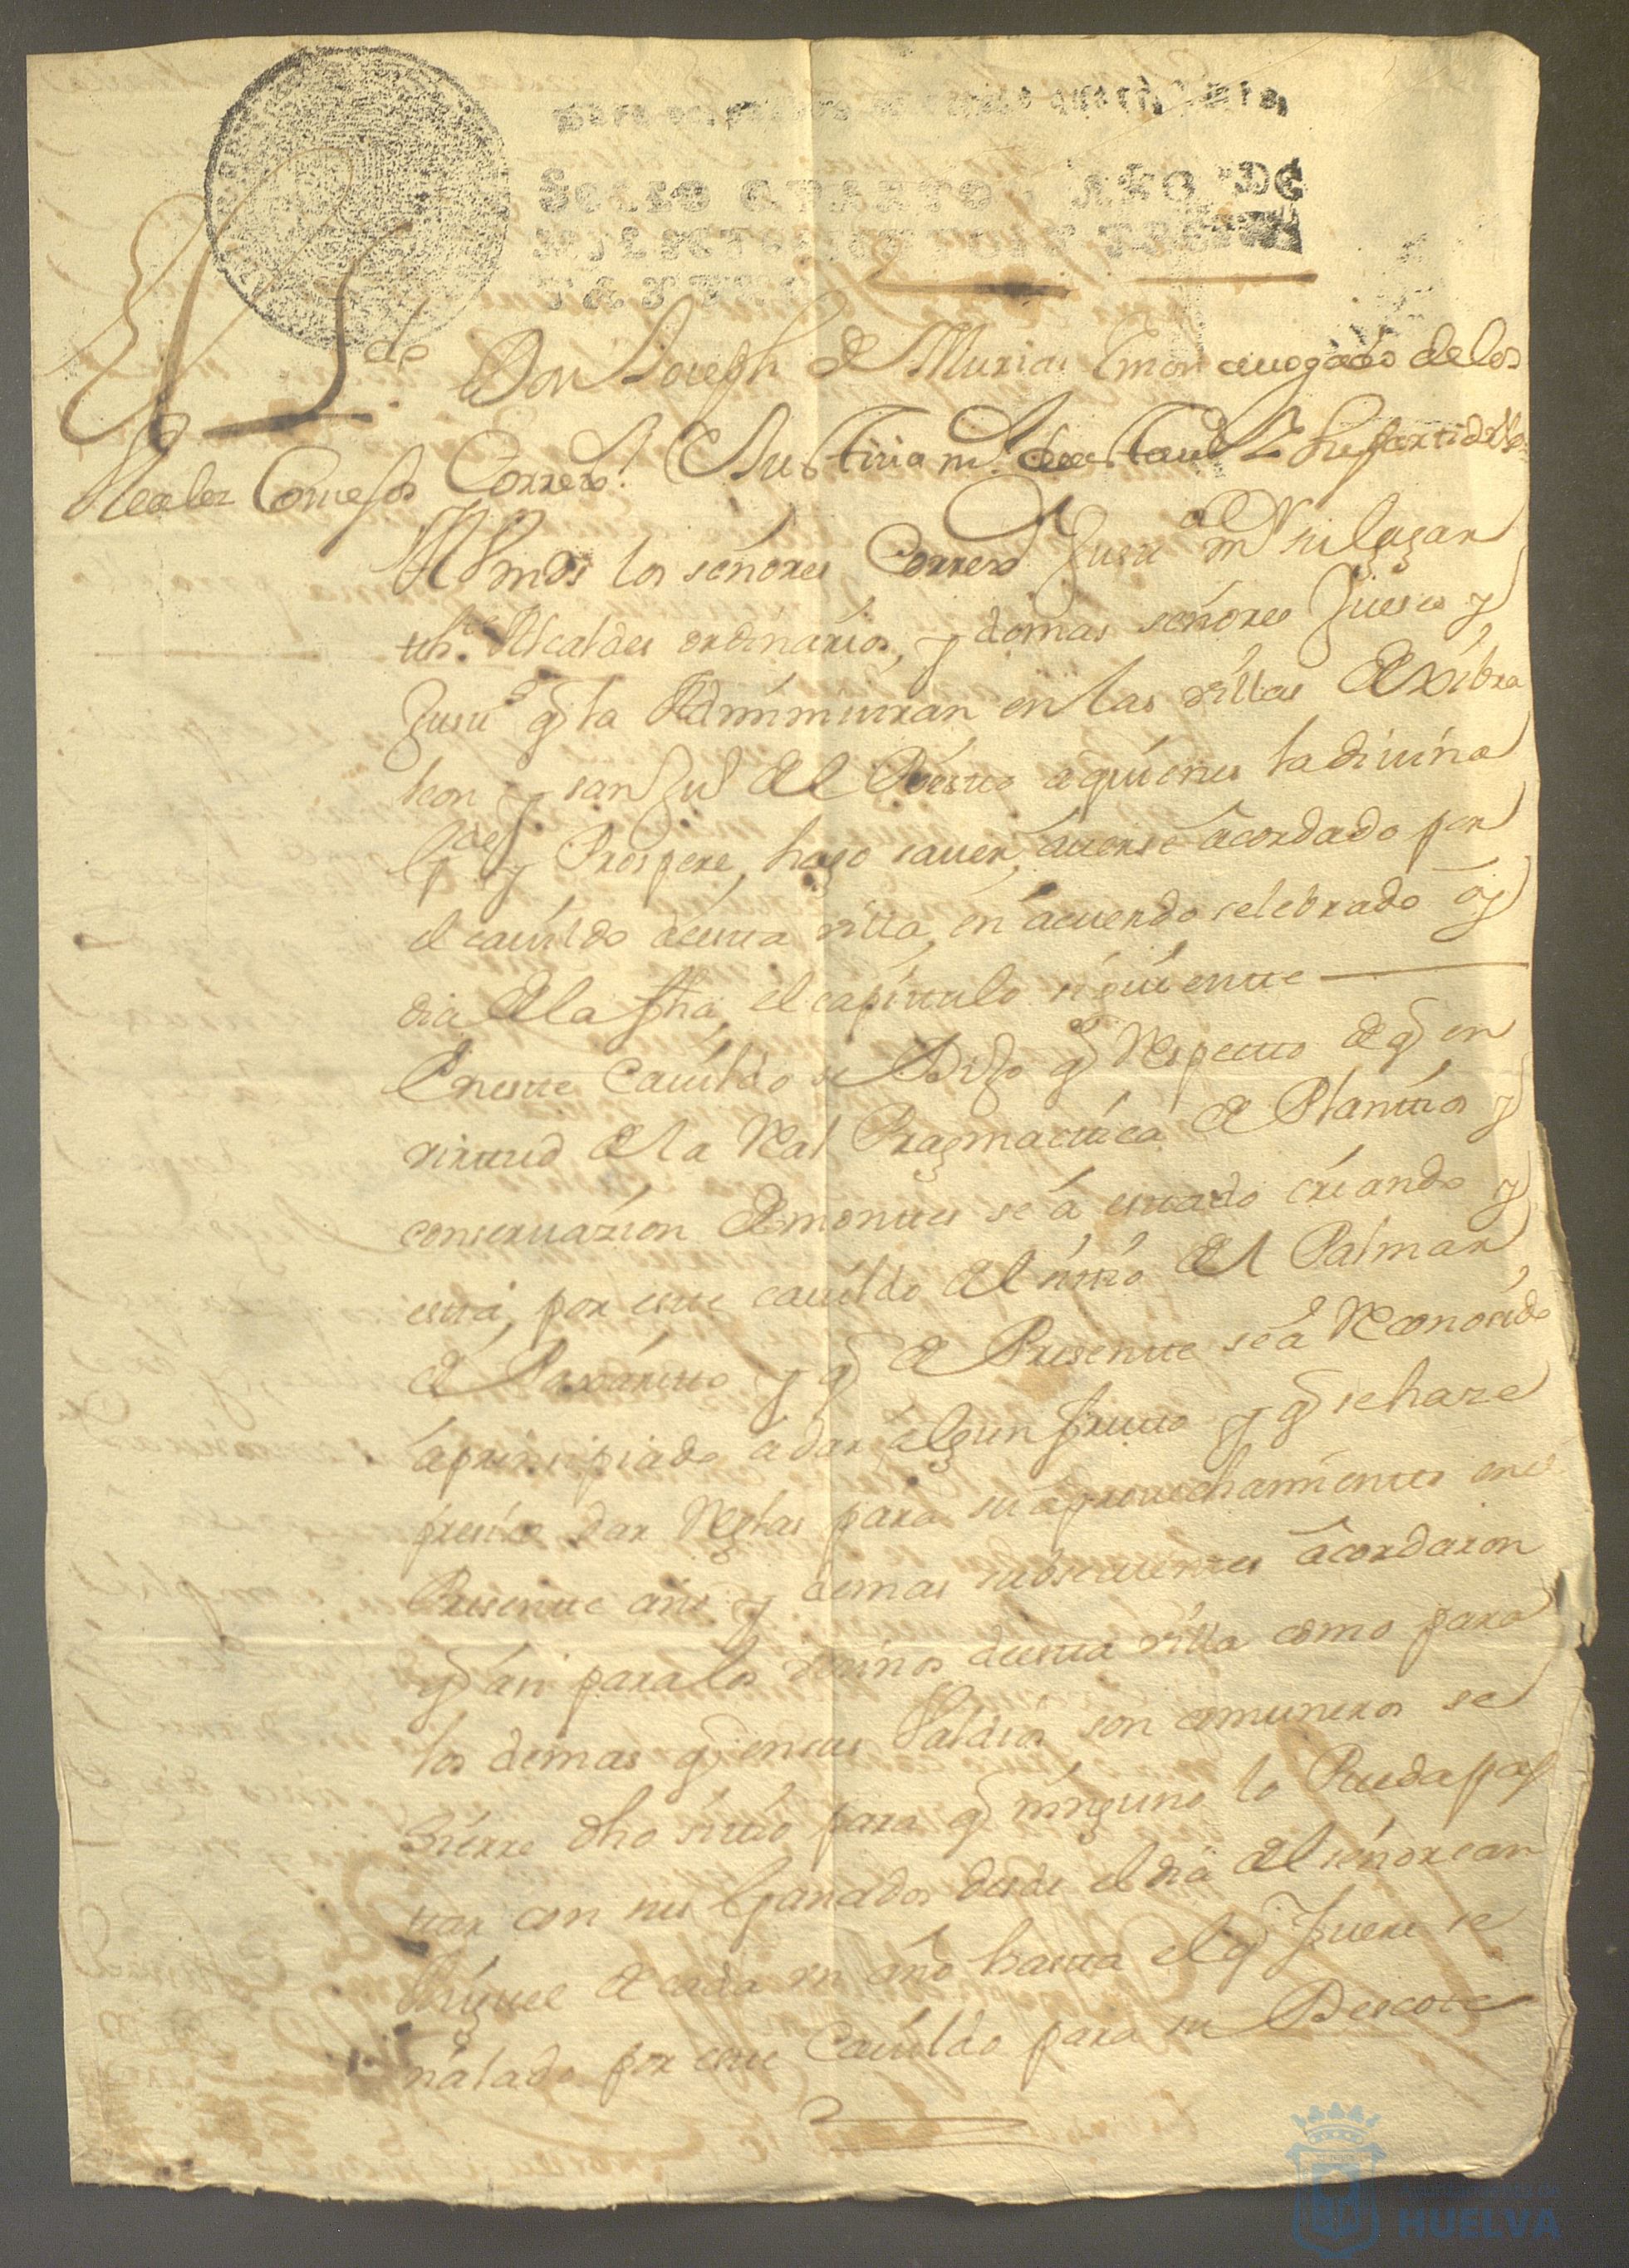 SELLO QVARTO, AÑO DE
Don Joseph de Murias avogado de los
Reales Consejos Correxr. Justizia mr. de esta vª y su partido
A Vmds los señores Correxr Justª mr su lugar
the. Alcaldes ordinarios, y demas señores Jueses y
Justª q la Administran en las villas de xibra
leon y san Ju del Puerto a quienes la divina
gde y Prospere, hago saver, averse acordado por
el cavildo desta villa, en acuerdo selebrado oy
dia de la fha, el capitulo siguiente
En este Cavildo se Dijo q Respecto de q en
virtud de la Real Pragmactica de Plantios y
conservazion de montes se á estado criando y
está por este cavildo el sitio del Palmar
de Paxarito y q de Presente se á Reconosido
á prinsipiado a dar algun fruto y q se haze
presiso dar Reglas para su aprovechamiento en el
Presente año y demas subsecuentes acordaron
q asi para los vesinos desta villa como para
los demas q en sus Valdios son comuneros se
Sierre dho sitio para q ninguno lo Pueda pas
tar con sus Ganados desde el dia del señor san
Miguel de cada un año hasta el q fuere se
ñalado por este Cavildo para su Descote
HUELVA